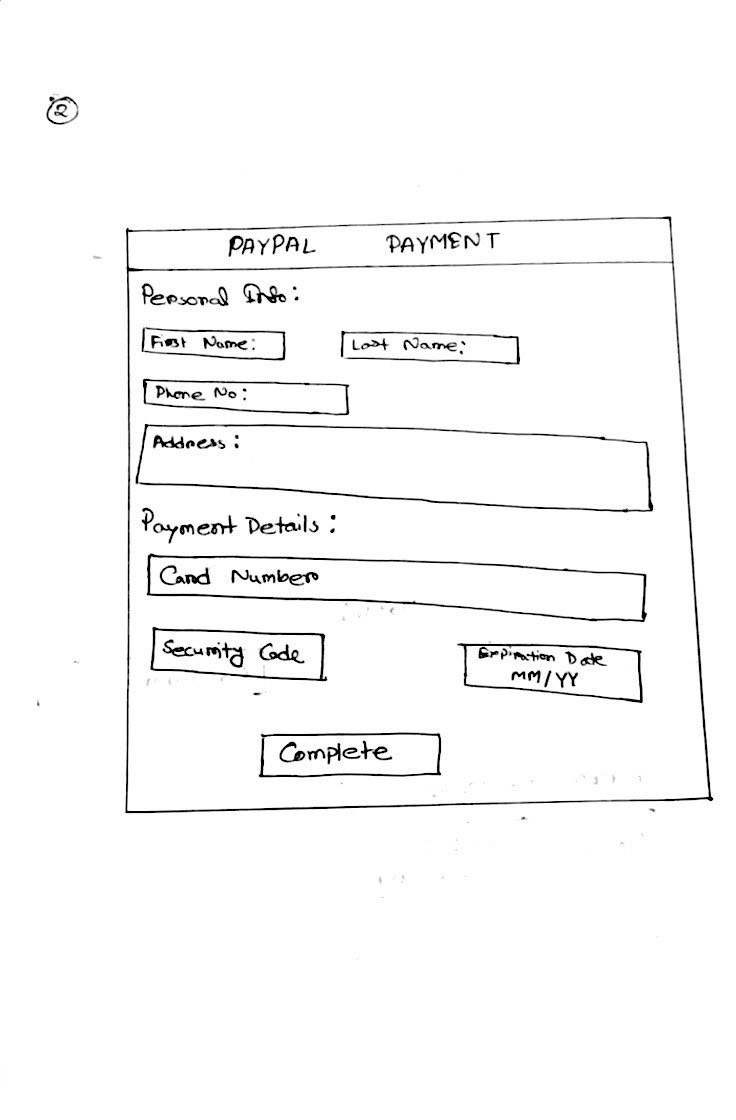 2
PAYPAL PAYMENT
Personal Info:
First Name: Last Name:
Phone No:
Address:
Payment Details:
Card Number
Security Code Expiration Date
MM/YY
Complete